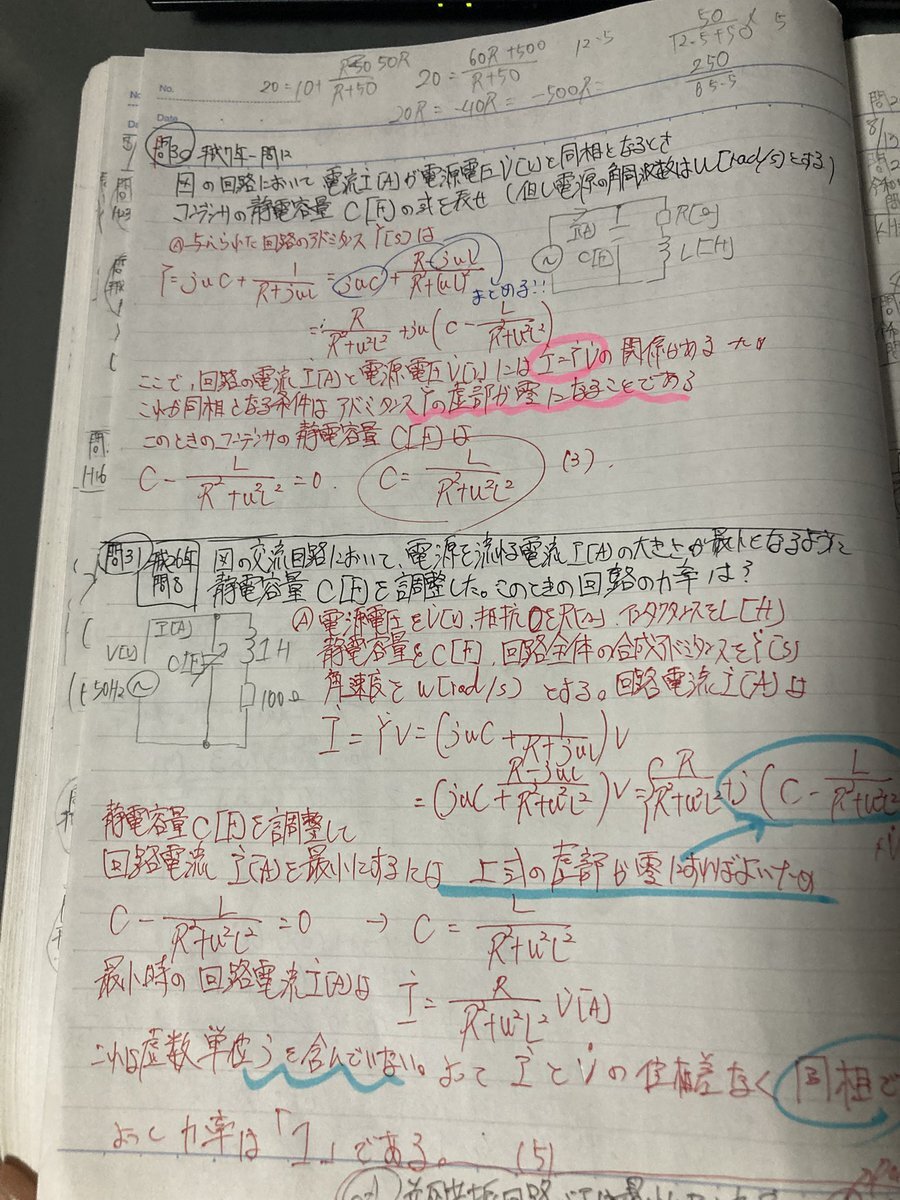 No.
Date
20=10+ 50R/R+50
20= 60R+500/R+50
12.5
50/12.5+50 × 5
20R= -40R= -500R=
250
問30 平成7年-問12
図の回路において電流İ[A]が電源電圧V̇[V]と同相となるとき
コンデンサの静電容量 C[F]の式を表せ (但し電源の角周波数はω[rad/s]とする)
Ⓐ与えられた回路のアドミタンスẎ[S]は
I[A]
C[F]
R[Ω]
L[H]
Ẏ=jωC+ 1/R+jωL = jωC+ R-jωL/R²+(ωL)²
まとめる!!
= R/R²+ω²L² +jω(C- L/R²+ω²L²)
ここで,回路の電流 İ[A]と電源電圧V̇[V]には İ=ẎV̇の関係がある ため
これが同相となる条件は アドミタンスẎの虚部が零になることである
このときのコンデンサの静電容量 C[F]は
C- L/R²+ω²L² =0. C= L/R²+ω²L² (3).
問
H16
問31 平成26年 問8
図の交流回路において、電源を流れる電流 I[A]の大きさが最小となるように
静電容量 C[F]を調整した。このときの回路の力率は?
I[A]
V[V]
C[F]
1H
50Hz
100Ω
Ⓐ 電源電圧をV̇[V], 抵抗をR[Ω], インダクタンスをL[H]
静電容量をC[F], 回路全体の合成アドミタンスをẎ[S]
角速度をω[rad/s] とする。回路電流 İ[A]は
İ=ẎV=(jωC+ 1/R+jωL)V
=(jωC+ R-jωL/R²+ω²L²)V={R/R²+ω²L² +j(C- L/R²+ω²L²
静電容量C[F]を調整して
回路電流 İ[A]を最小にするには 上式の虚部が零にすればよいため
C- L/R²+ω²L² =0 → C= L/R²+ω²L²
最小時の回路電流İ[A]は İ= R/R²+ω²L² V̇[A]
これは虚数単位jを含んでいない。よって İとV̇の位相差なく 同相で
よって力率は「1」である。 (5)